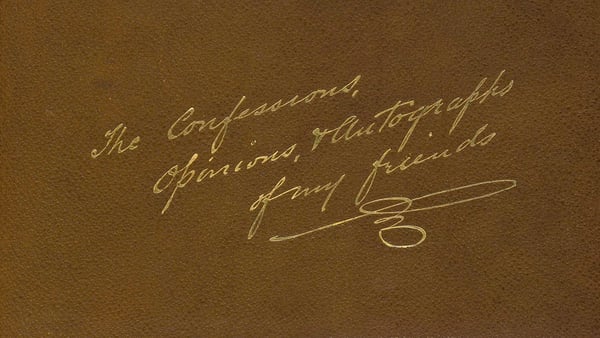 The Confessions,
Opinions, & Autographs
of my friends